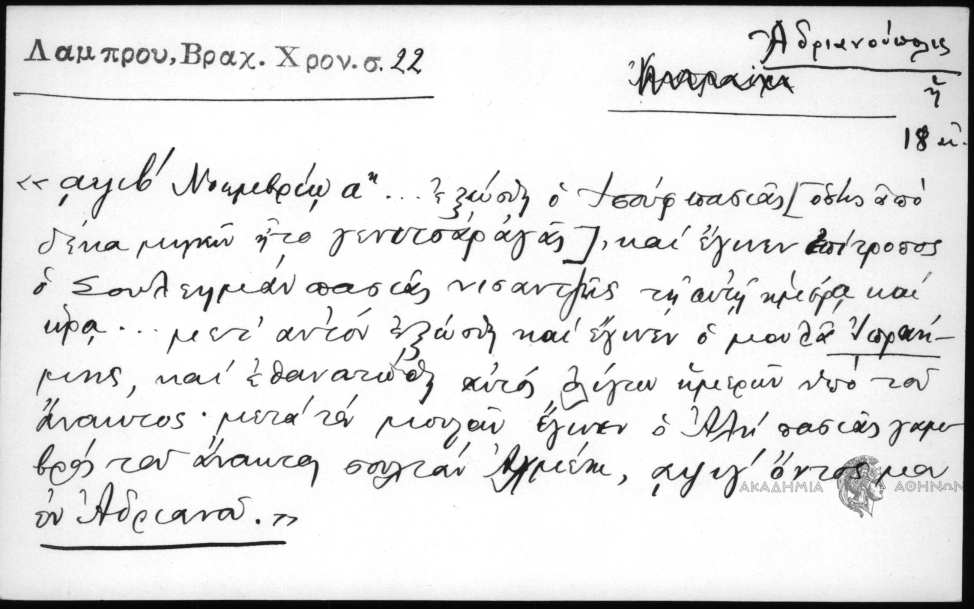 Λαμπρου, Βραχ. Χρον. σ. 22
Ἀδριανούπολις
ἡ
18 κ.
«͵αψιβ' Νοεμβρίῳ αῃ ... ἐξεώσθη ὁ Ἰσούφ πασιᾶς [ὅστις ἀπό
δέκα μηνῶν ἦτο γενιτσάραγάς], καί ἔγινεν ἐπίτροπος
ὁ Σουλεημάν πασιᾶς νισαντζῆς τῇ αὐτῇ ἡμέρᾳ καί
ὥρᾳ ... μετ' αὐτόν ἐξεώσθη καί ἔγινεν ὁ μουλᾶ Ἰμπραή-
μης, καί ἐθανατώθη αὐτός ὀλίγων ἡμερῶν ὑπό τοῦ
ἄνακτος· μετά τόν μουλᾶν ἔγινεν ὁ Ἀλή πασιᾶς γαμ-
βρός τοῦ ἄνακτος σουλτάν Ἀχμέτη, ͵αψιγ' ὄντος μου
ἐν Ἀδριανοῦ.»
ΑΚΑΔΗΜΙΑ ΑΘΗΝΩΝ